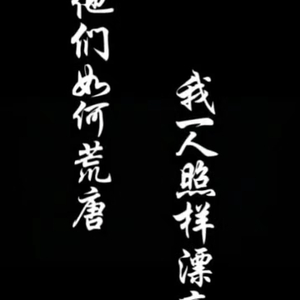 他们如何荒唐
我一人照样漂